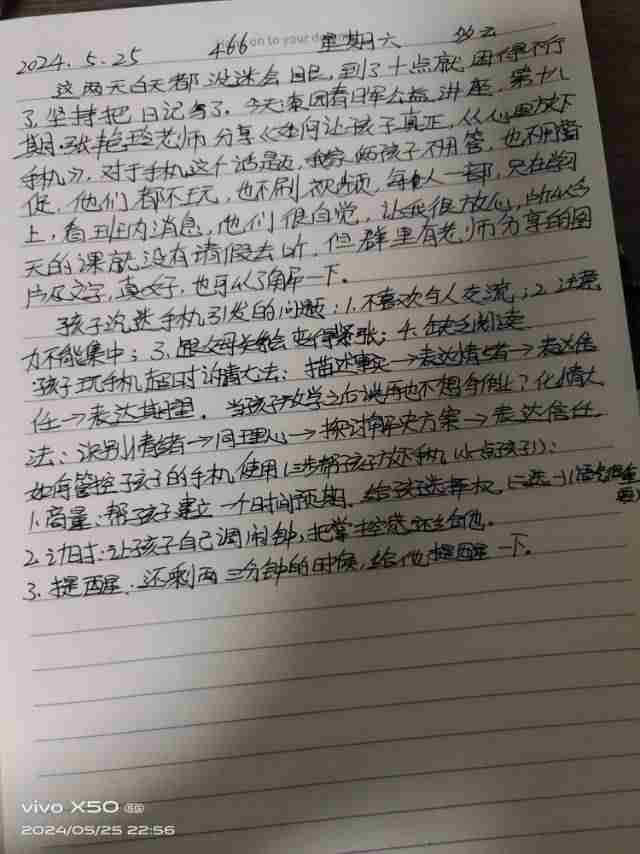 on to your
2024.5.25 466 星期六 多云
这两天白天都没迷会眼,到了十点就困得不行
了,坚持把日记写了。今天读团有日军公益讲座,第十八
期,张艳玲老师分享《如何让孩子真正从心里放下
手机》,对于手机这个话题,我家俩孩子不用管,也不用督
促,他们都不玩,也不刷视频,每人一部,只在学习
上,看班内消息,他们很自觉,让我很放心,所以今
天的课就没有请假去听,但群里有老师分享的图
片及文字,真好,也可以了解一下。
孩子沉迷手机引发的问题:1.不喜欢与人交流;2.注意
力不能集中;3.跟父母关系会变得紧张;4.缺乏阅读
孩子玩手机超时讲情大法:描述事实→表达情绪→表达信
任→表达期望。当孩子放学之后说再也不想写作业了?化情大
法:识别情绪→同理心→探讨解决方案→表达信任
如何管控孩子的手机使用(三步帮孩子放下手机(小点孩子)):
1.商量:帮孩子建立一个时间预期,给孩选择权,二选一
2.计时:让孩子自己调闹钟,把掌控感还给他。
3.提醒:还剩两三分钟的时候,给他提醒一下。
vivo X50 5G
2024/05/25 22:56